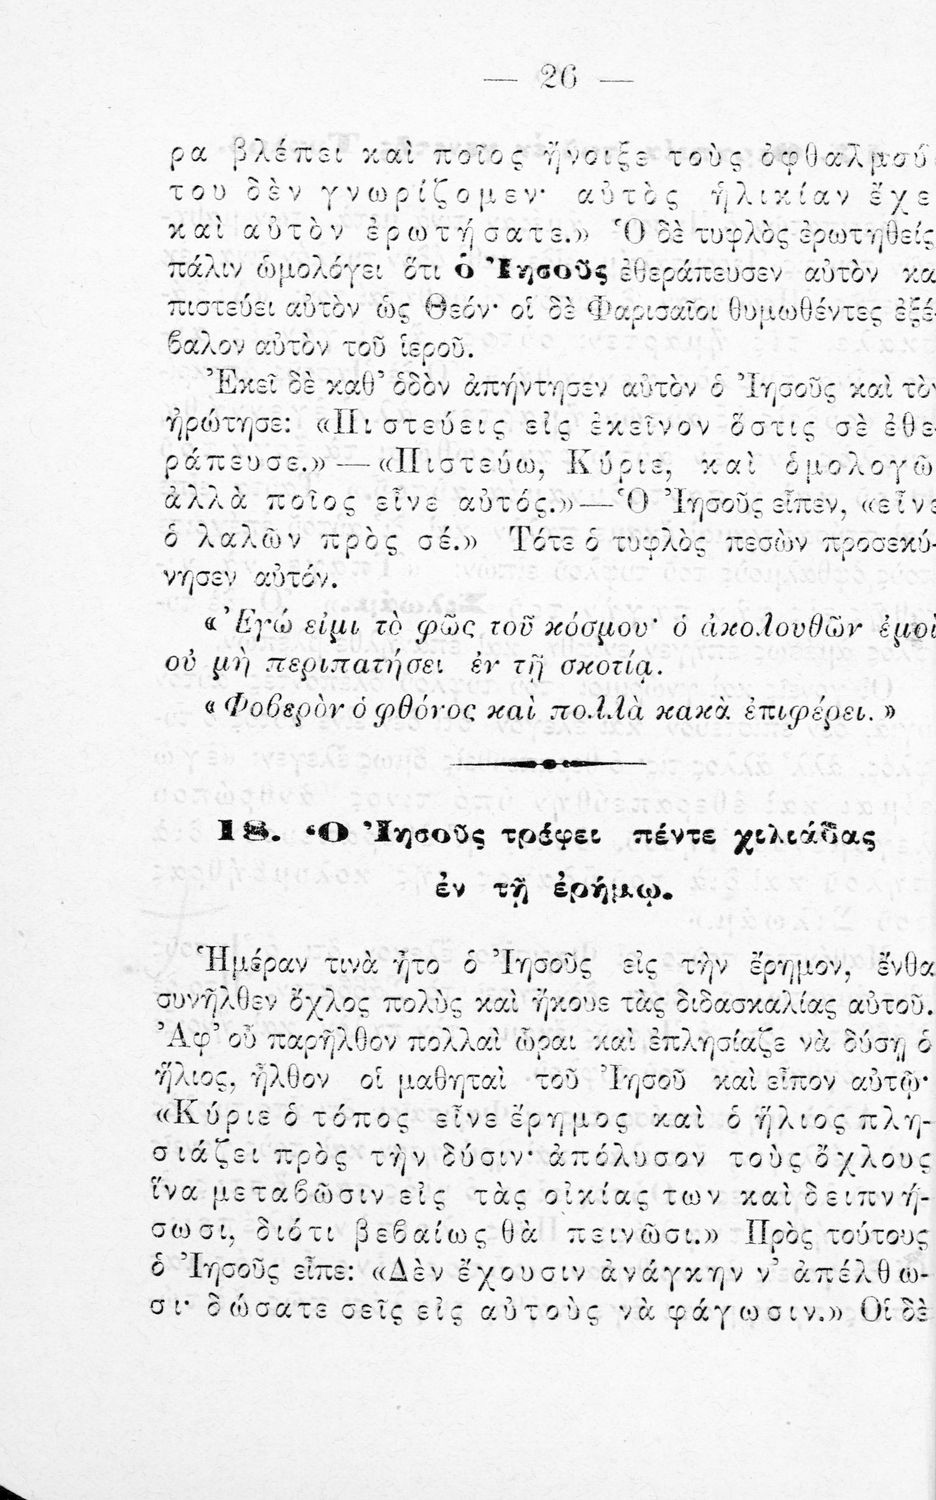 — 26 —
ρα βλέπει καὶ ποῖος ἤνοιξε τοὺς ὀφθαλμού
του δὲν γνωρίζομεν· αὐτὸς ἡλικίαν ἔχε
καὶ αὐτὸν ἐρωτήσατε.» Ὁ δὲ τυφλὸς ἐρωτηθείς
πάλιν ὡμολόγει ὅτι ὁ Ἰησοῦς ἐθεράπευσεν αὐτὸν κα
πιστεύει αὐτὸν ὡς Θεόν· οἱ δὲ Φαρισαῖοι θυμωθέντες ἐξέ-
βαλον αὐτὸν τοῦ ἱεροῦ.
Ἐκεῖ δὲ καθ’ ὁδὸν ἀπήντησεν αὐτὸν ὁ Ἰησοῦς καὶ τὸν
ἠρώτησε: «Πιστεύεις εἰς ἐκεῖνον ὅστις σὲ ἐθε-
ράπευσε.» — «Πιστεύω, Κύριε, καὶ ὁμολογῶ
ἀλλὰ ποῖος εἶνε αὐτός.»— Ὁ Ἰησοῦς εἶπεν, «εἶνε
ὁ λαλῶν πρὸς σέ.» Τότε ὁ τυφλὸς πεσὼν προσεκύ-
νησεν αὐτόν.
«Ἐγώ εἰμι τὸ φῶς τοῦ κόσμου· ὁ ἀκολουθῶν ἐμοὶ
οὐ μὴ περιπατήσει ἐν τῇ σκοτίᾳ.
«Φοβερὸν ὁ φθόνος καὶ πολλὰ κακὰ ἐπιφέρει.»
18. Ὁ Ἰησοῦς τρέφει πέντε χιλιάδας
ἐν τῇ ἐρήμῳ.
Ἡμέραν τινὰ ἦτο ὁ Ἰησοῦς εἰς τὴν ἔρημον, ἔνθα
συνῆλθεν ὄχλος πολὺς καὶ ἤκουε τὰς διδασκαλίας αὐτοῦ.
Ἀφ’ οὗ παρῆλθον πολλαὶ ὧραι καὶ ἐπλησίαζε νὰ δύσῃ ὁ
ἥλιος, ἦλθον οἱ μαθηταὶ τοῦ Ἰησοῦ καὶ εἶπον αὐτῷ·
«Κύριε ὁ τόπος εἶνε ἔρημος καὶ ὁ ἥλιος πλη-
σιάζει πρὸς τὴν δύσιν· ἀπόλυσον τοὺς ὄχλους
ἵνα μεταβῶσιν εἰς τὰς οἰκίας των καὶ δειπνή-
σωσι, διότι βεβαίως θὰ πεινῶσι.» Πρὸς τούτους
ὁ Ἰησοῦς εἶπε: «Δὲν ἔχουσιν ἀνάγκην ν’ ἀπέλθω-
σι· δώσατε σεῖς εἰς αὐτοὺς νὰ φάγωσιν.» Οἱ δὲ